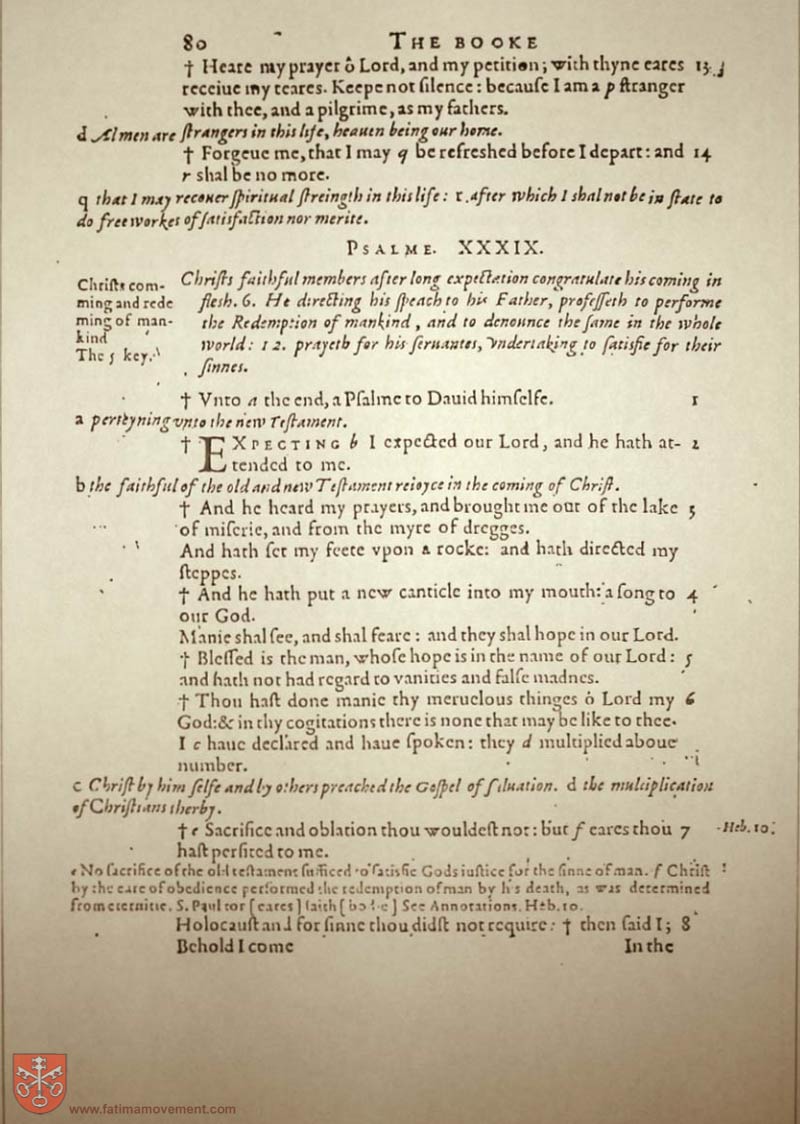 80 THE BOOKE
† Heare my prayer ô Lord, and my petition; with thyne eares 13
receiue my teares. Keepe not silence: because I am a p stranger
with thee, and a pilgrime, as my fathers.
d Al men are strangers in this life, heauen being our home.
† Forgeue me, that I may q be refreshed before I depart: and 14
r shal be no more.
q that I may recouer spiritual streingth in this life: r. after which I shal not be in state to
do free workes of satisfaction nor merite.
PSALME. XXXIX.
Christs com-
ming and rede
ming of man-
kind
The 5 key.
Christs faithful members after long expectation congratulate his coming in
flesh. 6. He directing his speach to his Father, professeth to performe
the Redemption of mankind, and to denounce the same in the whole
world: 12. prayeth for his seruantes, vndertaking to satisfie for their
sinnes.
† Vnto a the end, a Psalme to Dauid himselfe. 1
a perteyning vnto the new Testament.
† EXPECTING b I expected our Lord, and he hath at- 2
tended to me.
b the faithful of the old and new Testament reioyce in the coming of Christ.
† And he heard my prayers, and brought me out of the lake 3
of miserie, and from the myre of dregges.
And hath set my feete vpon a rocke: and hath directed my
steppes.
† And he hath put a new canticle into my mouth: a song to 4
our God.
Manie shal see, and shal feare: and they shal hope in our Lord.
† Blessed is the man, whose hope is in the name of our Lord: 5
and hath not had regard to vanities and false madnes.
† Thou hast done manie thy meruelous thinges ô Lord my 6
God: & in thy cogitations there is none that may be like to thee.
I c haue declared and haue spoken: they d multiplied aboue
number.
c Christ by him selfe and by others preached the Gospel of saluation. d the multiplication
of Christians therby.
† e Sacrifice and oblation thou wouldest not: but f eares thou 7 Heb. 10.
hast perfited to me.
e No sacrifice of the old testament sufficed to satisfie Gods iustice for the sinne of man. f Christ
by the eare of obedience performed the redemption of man by his death, as was determined
from eternitie. S. Paul for [eares] saith [bodie] See Annotations. Heb. 10.
Holocaust and for sinne thou didst not require: † then said I; 8
Behold I come In the
www.fatimamovement.com